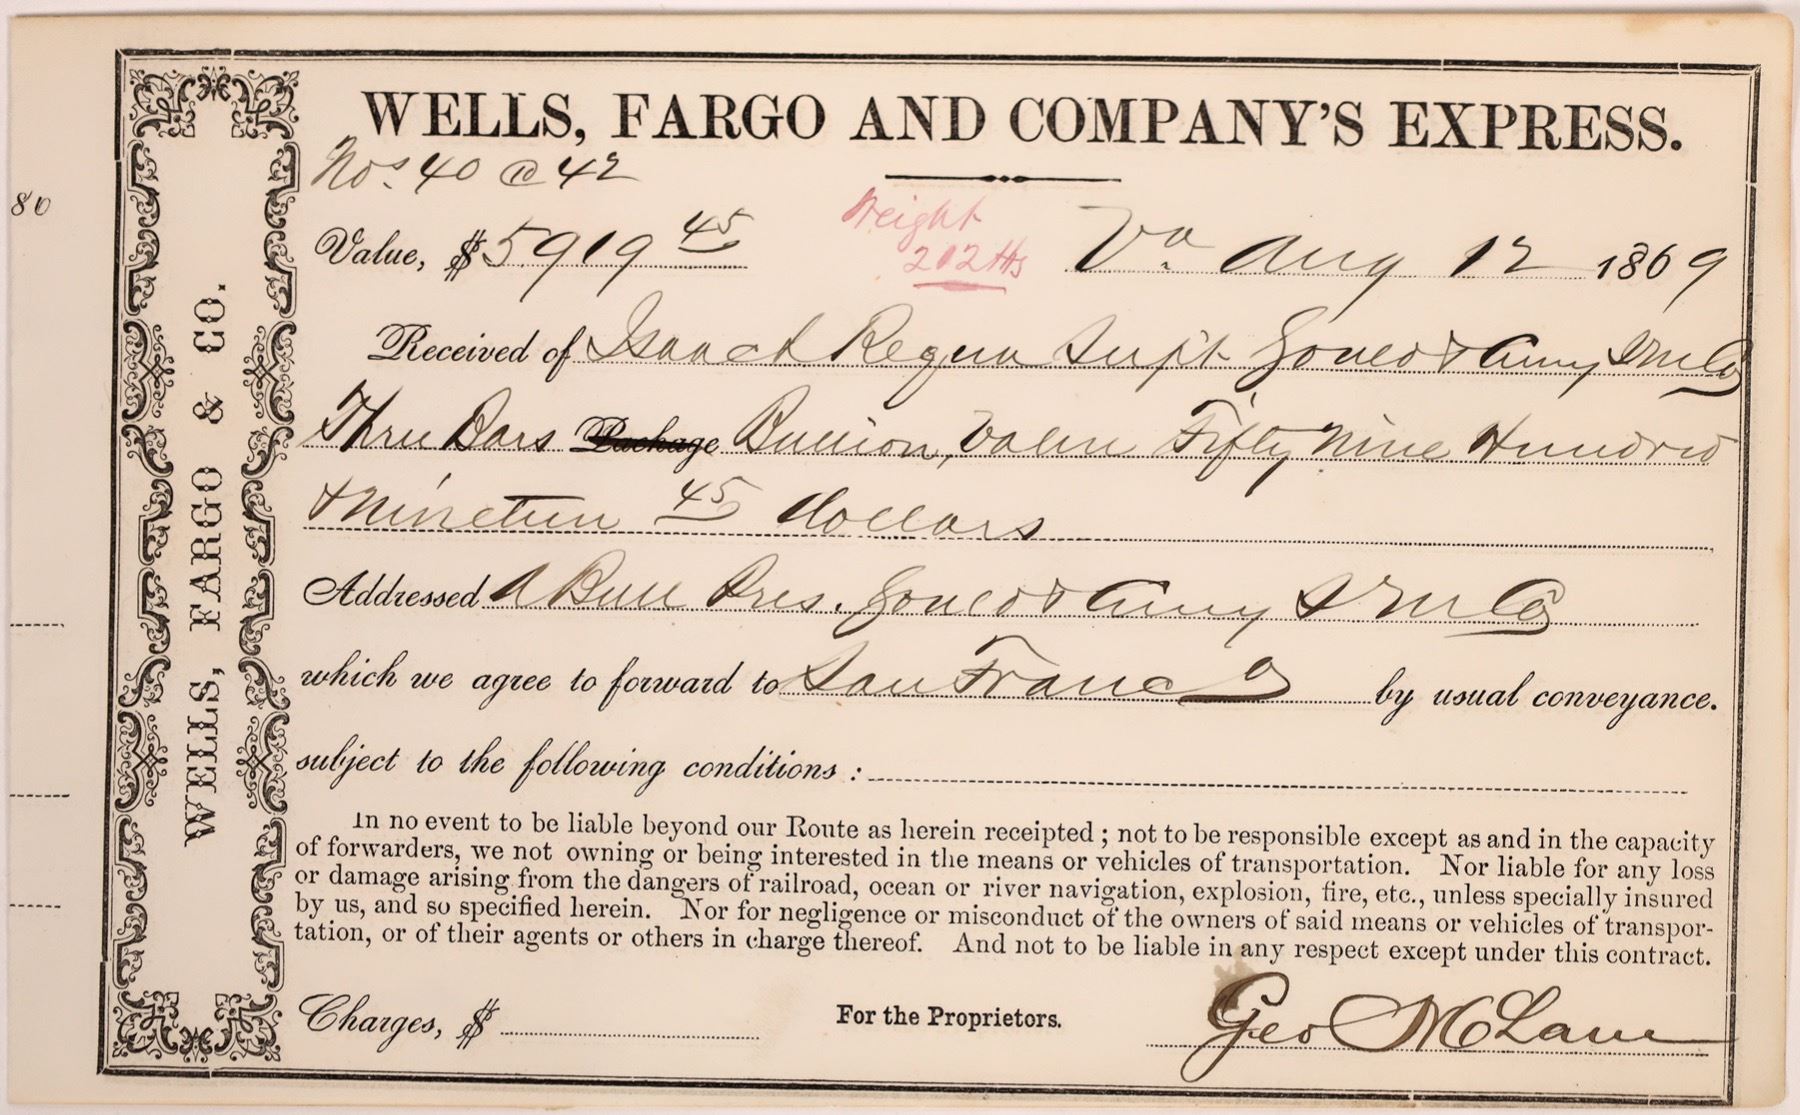 WELLS, FARGO AND COMPANY'S EXPRESS.
Nos. 40 @ 42
80
Value, $5919 45
Weight
212 lbs
Va. Aug 12 1869
Received of Isaac L Requa Supt Gould & Curry S M Co
Three Bars Package Bullion, Value Fifty Nine Hundred
& Nineteen 45 dollars
Addressed A Bull Pres. Gould & Curry S M Co
which we agree to forward to San Franco by usual conveyance.
subject to the following conditions :
In no event to be liable beyond our Route as herein receipted ; not to be responsible except as and in the capacity
of forwarders, we not owning or being interested in the means or vehicles of transportation. Nor liable for any loss
or damage arising from the dangers of railroad, ocean or river navigation, explosion, fire, etc., unless specially insured
by us, and so specified herein. Nor for negligence or misconduct of the owners of said means or vehicles of transpor-
tation, or of their agents or others in charge thereof. And not to be liable in any respect except under this contract.
Charges, $
For the Proprietors.
Geo McLane
WELLS, FARGO & CO.